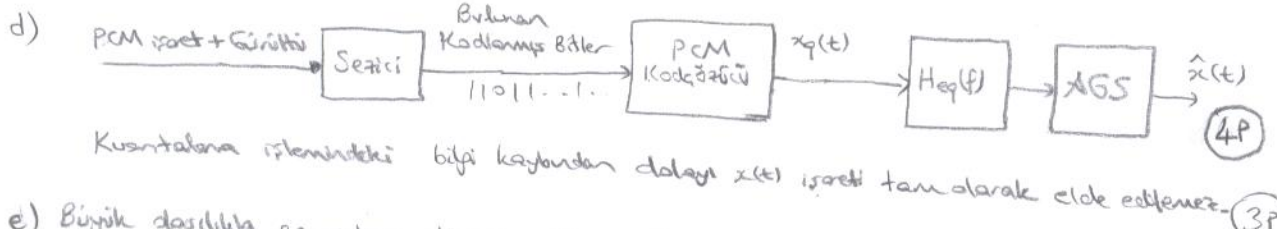 d)
PCM işaret + Gürültü
Sezici
Bulunan
Kodlanmış Bitler
11011..1..
PCM
Kodçözücü
xq(t)
Heq(f)
AGS
x̂(t)
4P
Kuantalama işlemindeki bilgi kaybından dolayı x(t) işareti tam olarak elde edilemez. 3P
e) Büyük